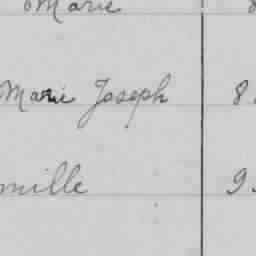 Marie
Marie Joseph 8
mille 9